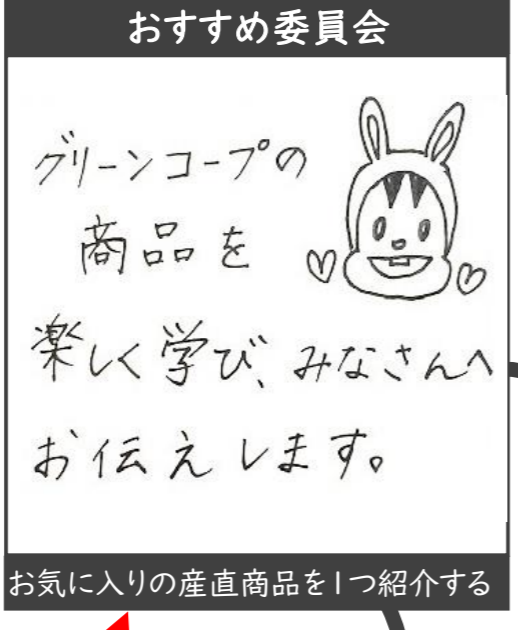 おすすめ委員会
グリーンコープの
商品を
楽しく学び、みなさんへ
お伝えします。
お気に入りの産直商品を1つ紹介する